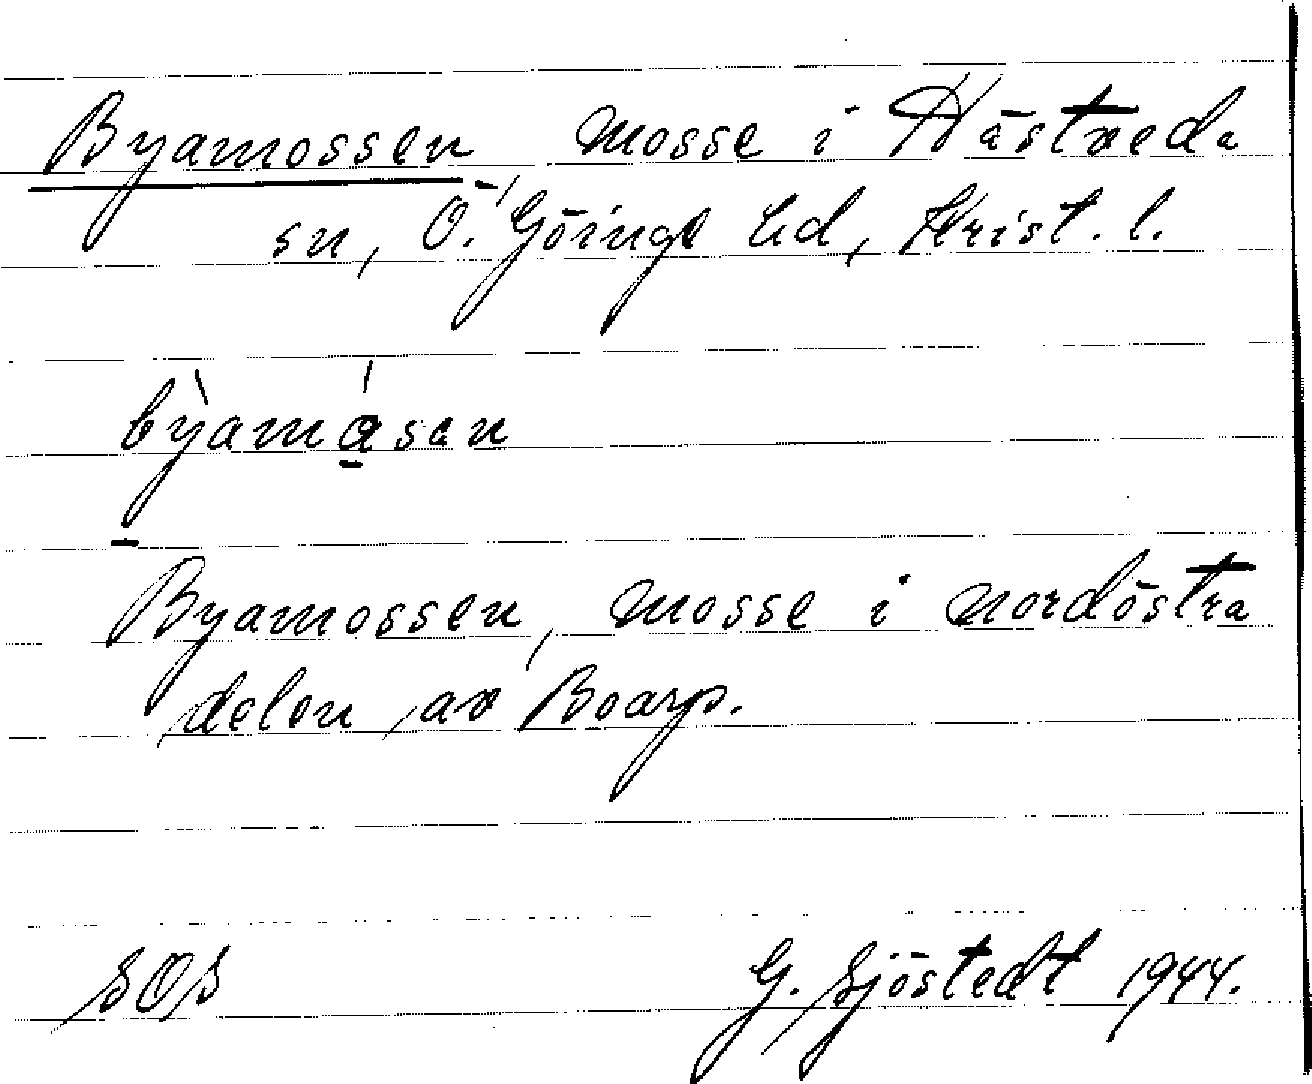 Byamossen, mosse i Hästveda
sn, Ö. Göinge hd, Krist. l.
bỳ̛amåsan
Byamossen, mosse i nordöstra
delen av Boarp.
SOS
G. Sjöstedt 1944.